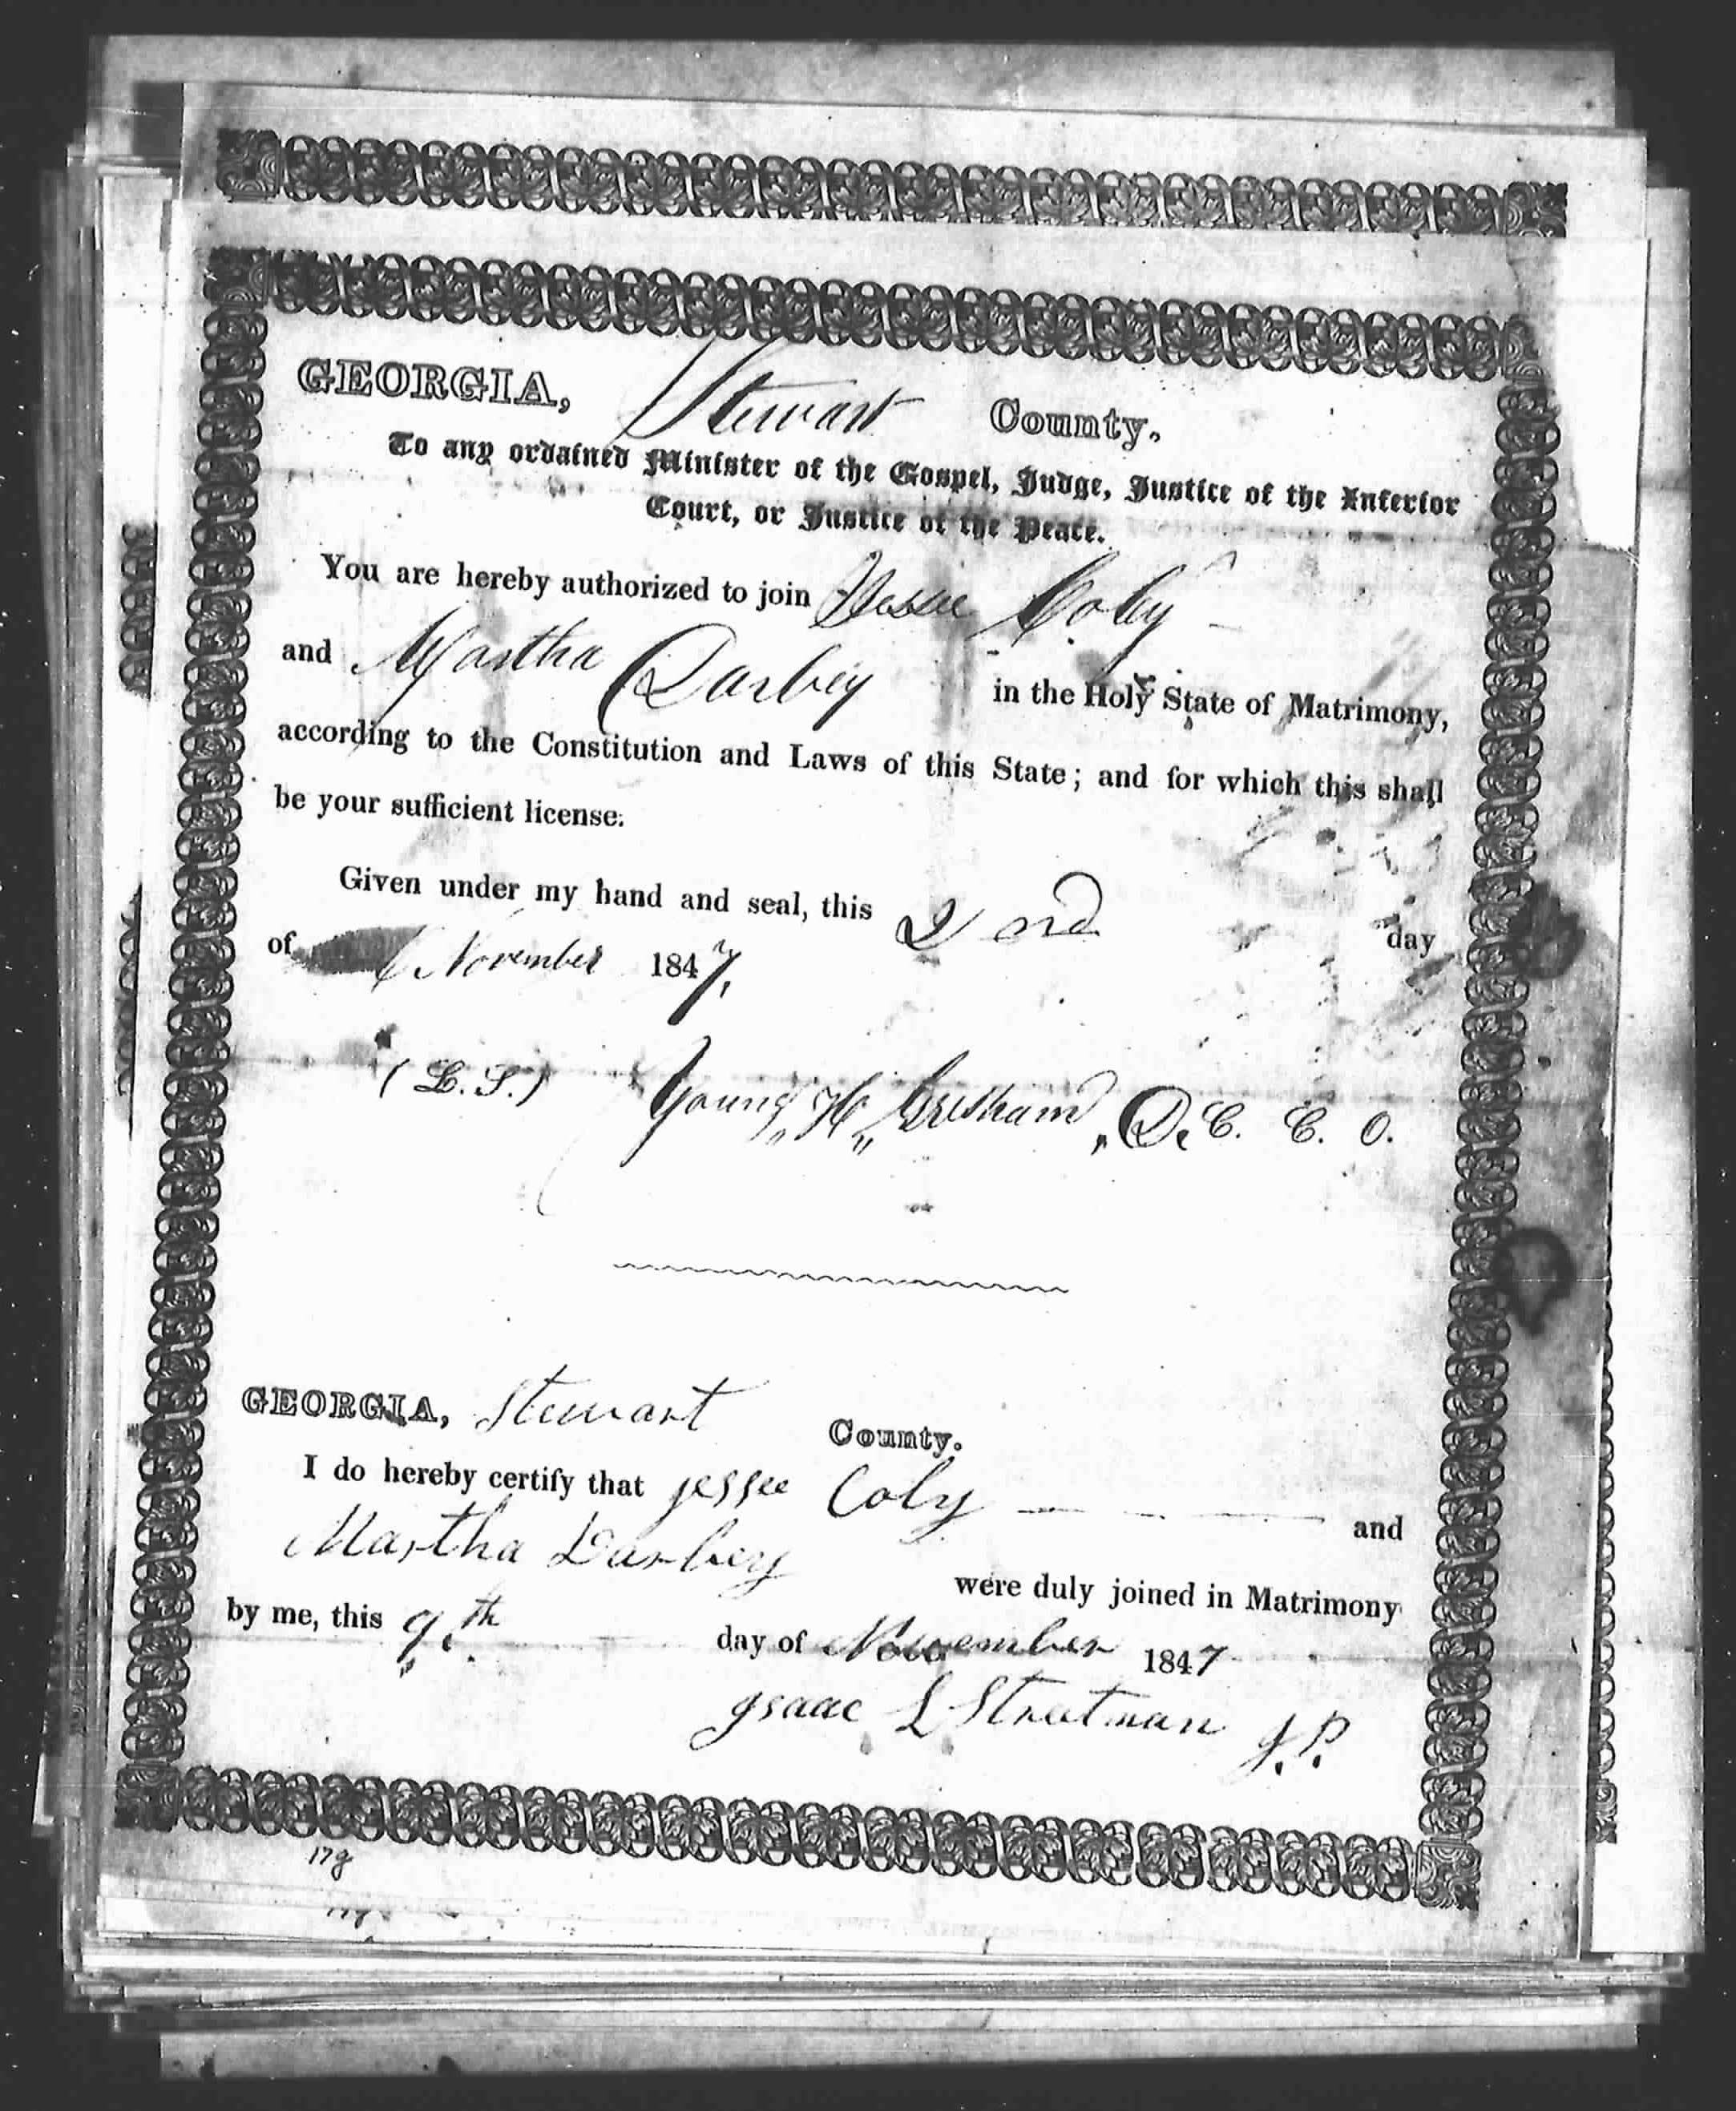 GEORGIA, Stewart County,
To any ordained Minister of the Gospel, Judge, Justice of the Inferior
Court, or Justice of the Peace.
You are hereby authorized to join Jessee Coby
and Martha Darbey in the Holy State of Matrimony,
according to the Constitution and Laws of this State; and for which this shall
be your sufficient license.
Given under my hand and seal, this 2nd day
of November 1847.
(L.S.) Young, H,, Gresham, D. C. C. O.
GEORGIA, Stewart County.
I do hereby certify that Jessee Coby and
Martha Darbey were duly joined in Matrimony
by me, this 9th day of November 1847
Isaac L Streetman J.P.